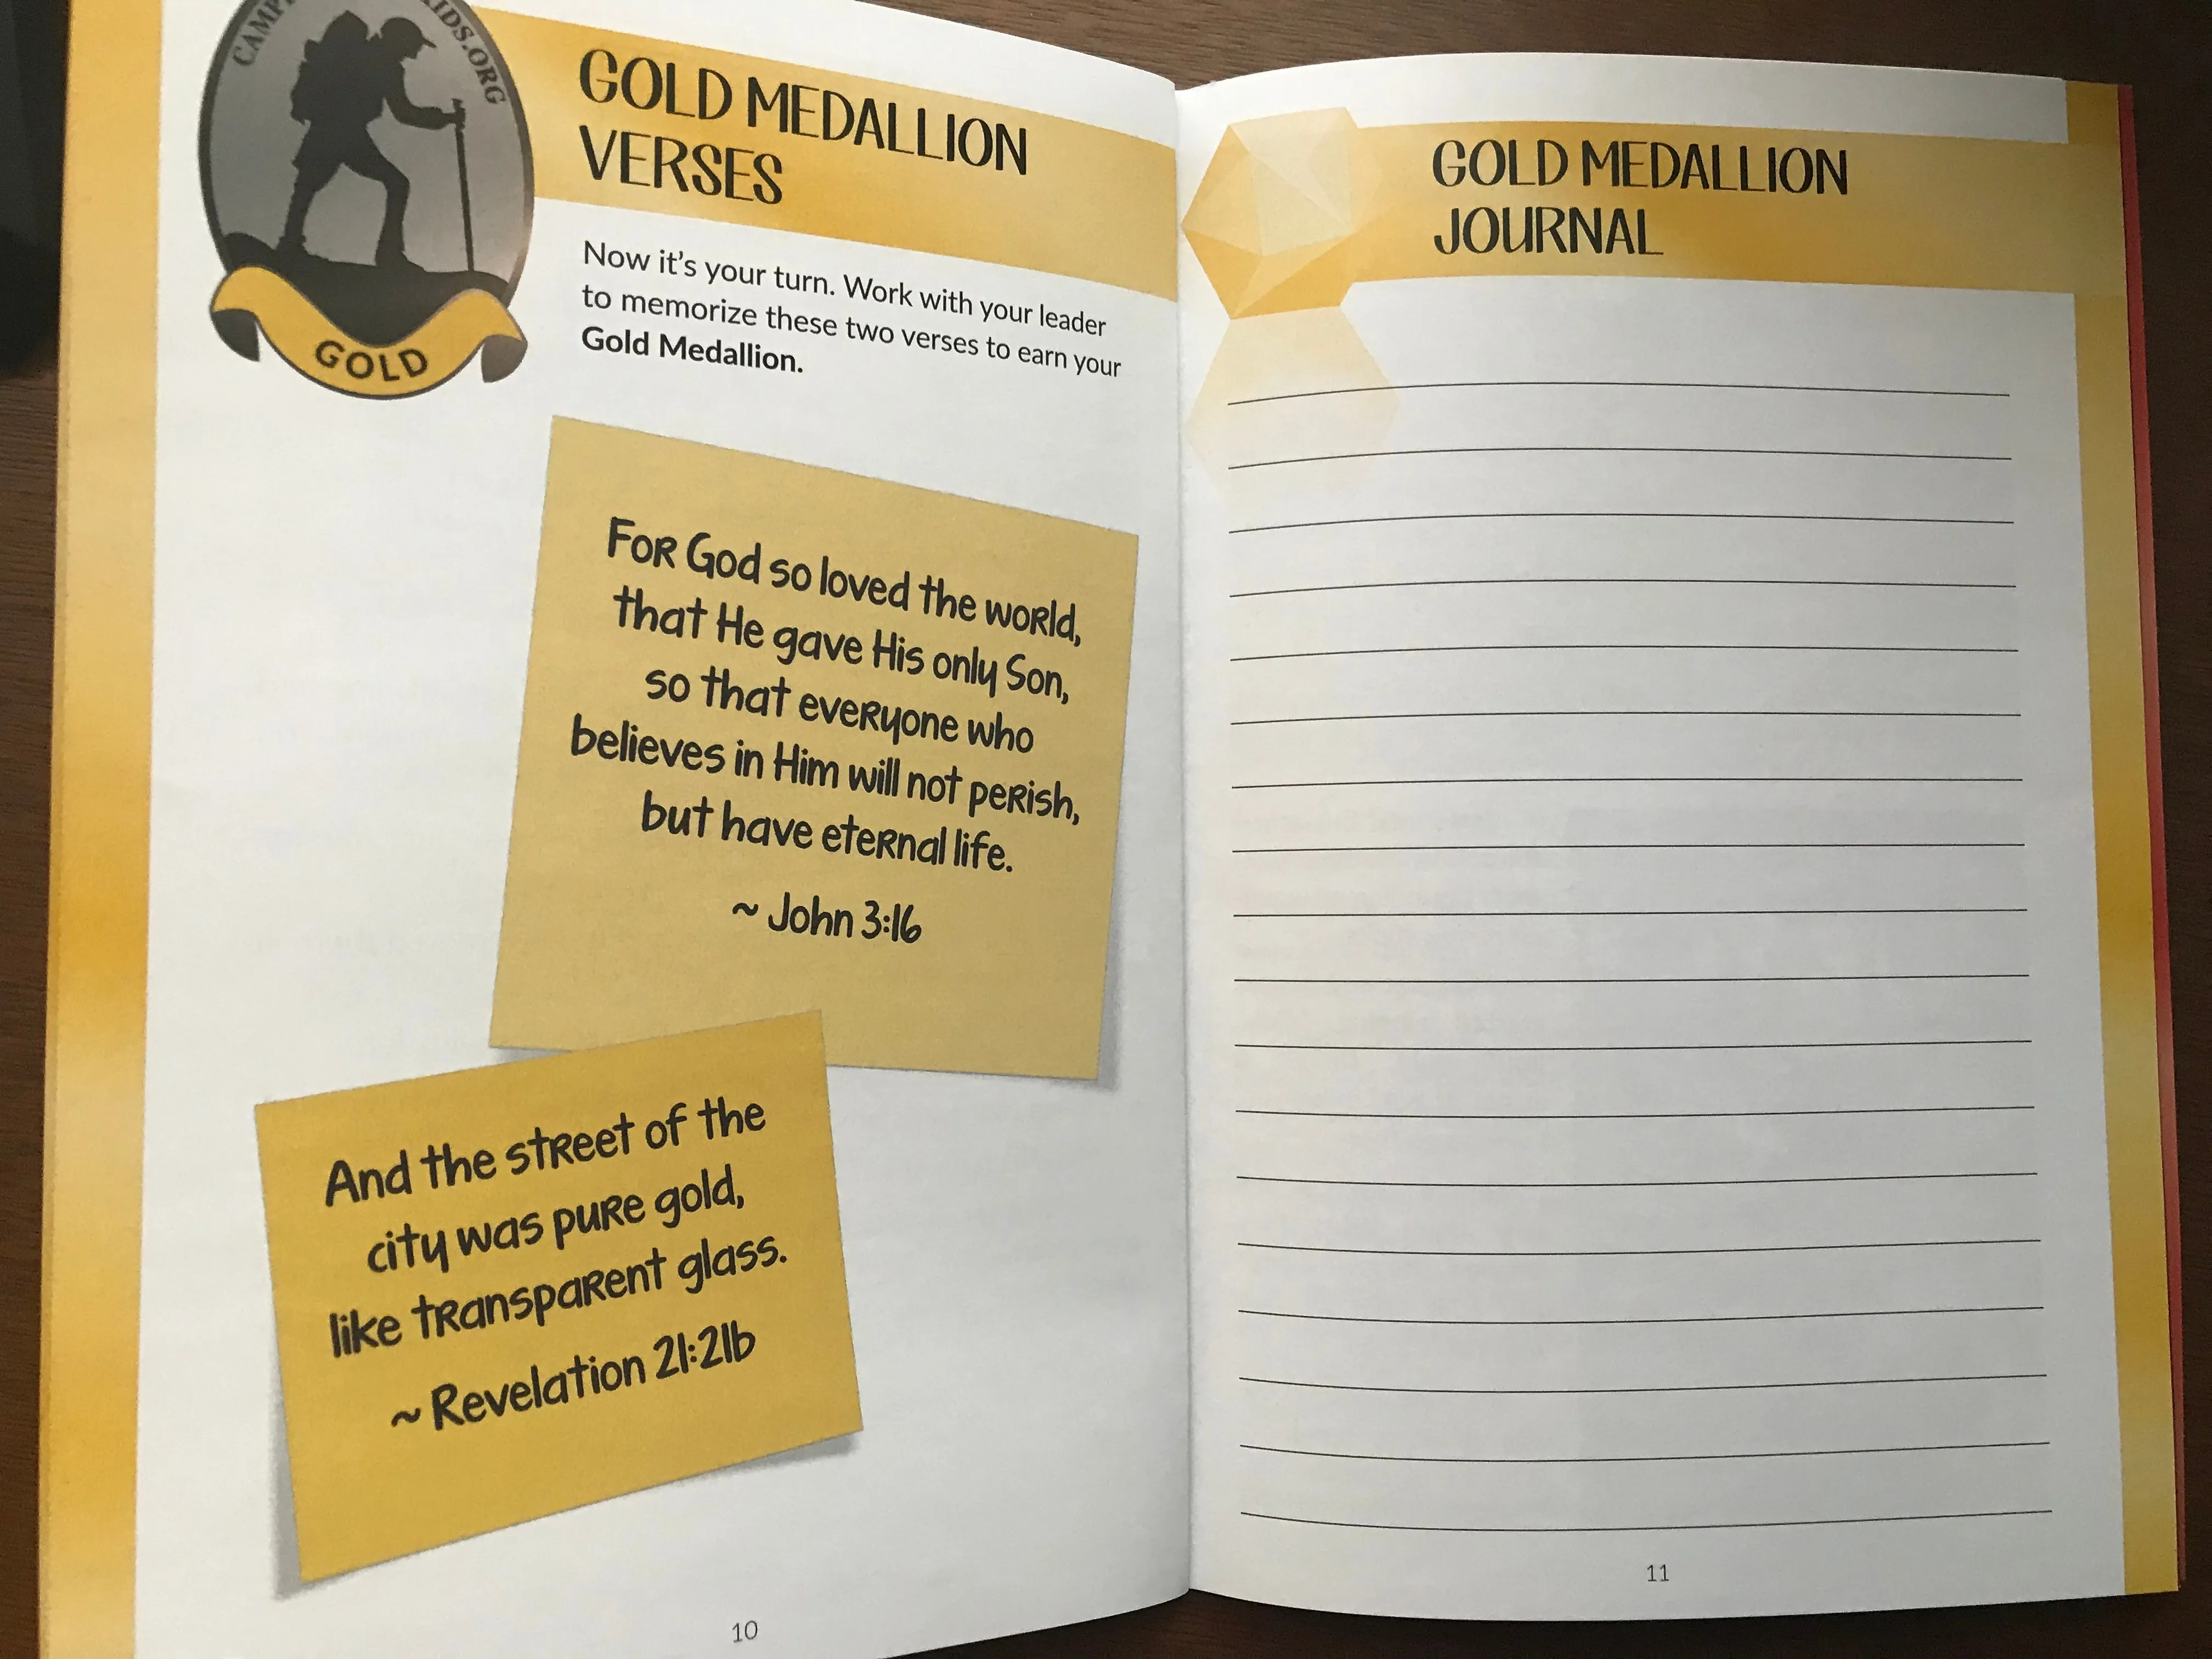 GOLD
GOLD MEDALLION
VERSES
Now it's your turn. Work with your leader
to memorize these two verses to earn your
Gold Medallion.
For God so loved the world,
that He gave His only Son,
so that everyone who
believes in Him will not perish,
but have eternal life.
~ John 3:16
And the street of the
city was pure gold,
like transparent glass.
~ Revelation 21:21b
10
GOLD MEDALLION
JOURNAL
11